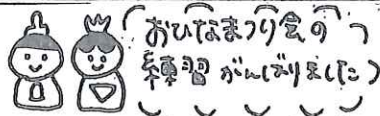 おひなまつり会の
練習がんばりました